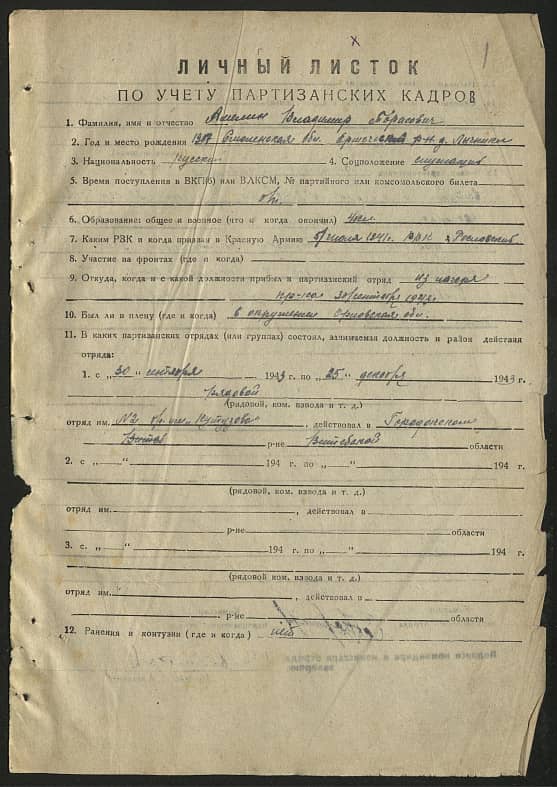 1
ЛИЧНЫЙ ЛИСТОК
ПО УЧЕТУ ПАРТИЗАНСКИХ КАДРОВ
1. Фамилия, имя и отчество Владимир
2. Год и место рождения Смоленская обл. р-н д.
3. Национальность русский 4. Соцположение служащий
5. Время поступления в ВКП(б) или ВЛКСМ, № партийного или комсомольского билета
б/п.
6. Образование: общее и военное (что и когда окончил) 4 кл.
7. Каким РВК и когда призван в Красную Армию 5/июля 1941г. РВК
8. Участие на фронтах (где и когда)
9. Откуда, когда и с какой должности прибыл в партизанский отряд из лагеря
30/сентября
10. Был ли в плену (где и когда) в окружении Орловская обл.
11. В каких партизанских отрядах (или группах) состоял, занимаемая должность и район действия
отряда:
1. с „30" сентября 1943 г. по „25" декабря 1943 г.
рядовой
(рядовой, ком. взвода и т. д.)
отряд им. №2 бр. им. Кутузова, действовал в Городокском
р-не Витебской области
2. с „ " 194 г. по „ " 194 г.
(рядовой, ком. взвода и т. д.)
отряд им. , действовал в
р-не области
3. с „ " 194 г. по „ " 194 г.
(рядовой, ком. взвода и т. д.)
отряд им. , действовал в
р-не области
12. Ранения и контузии (где и когда) нет